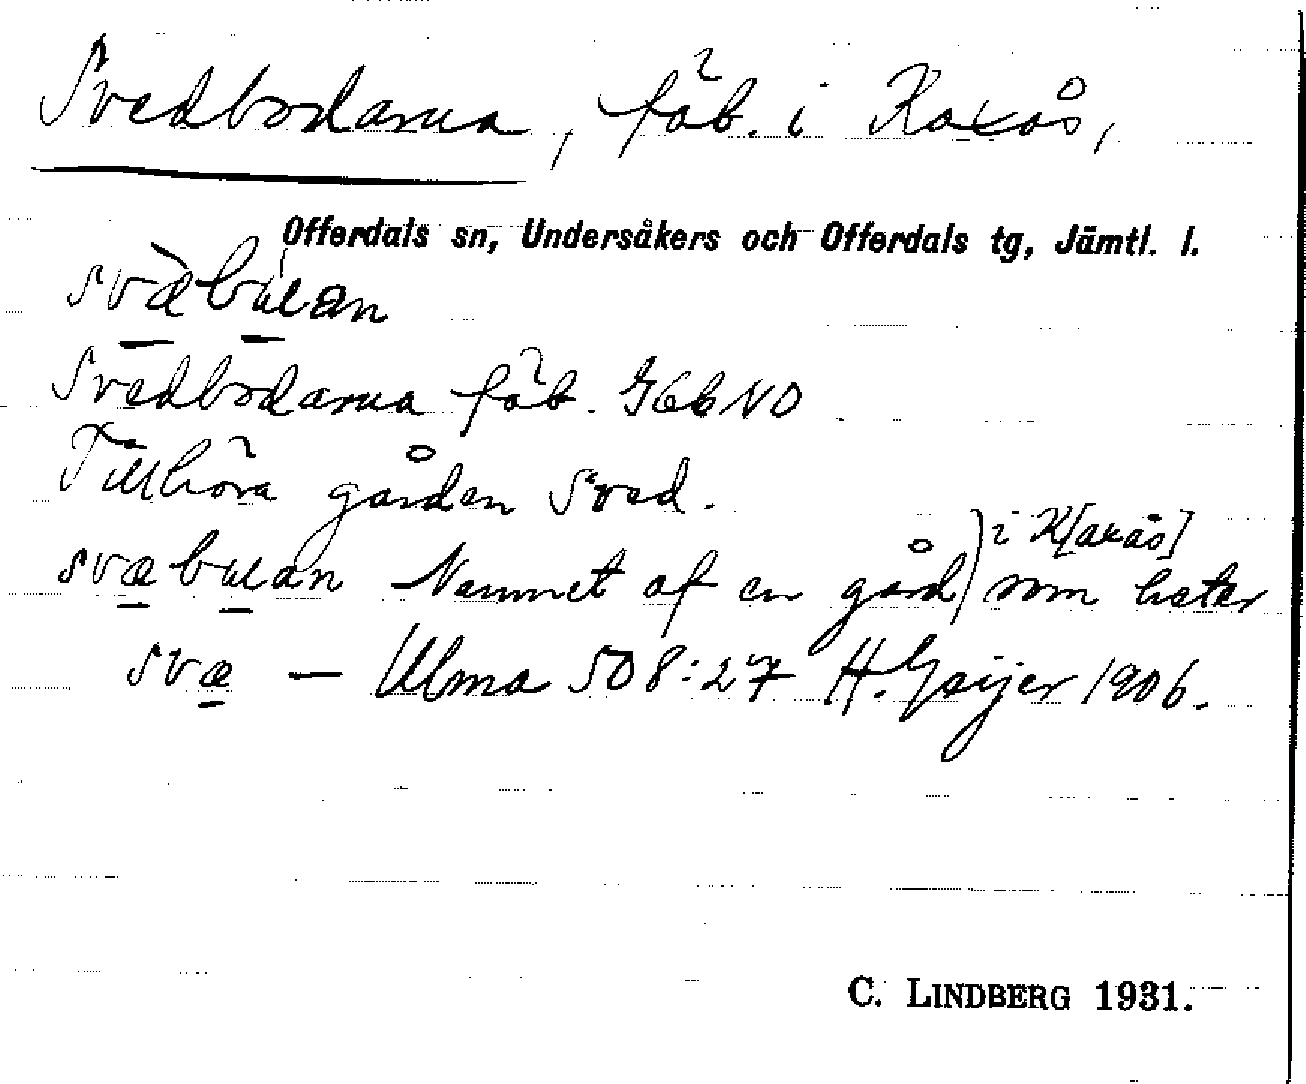 Svedbodarna, fäb. i Kaxås,
Offerdals sn, Undersåkers och Offerdals tg, Jämtl. l.
svæ̀buan
Svedbodarna fäb. G6b NO
Tillhöra gården Sved.
svæbuan Namnet af en gård i K[axås] som heter
svæ — Ulma 508:27 H. Geijer 1906.
C. LINDBERG 1931.